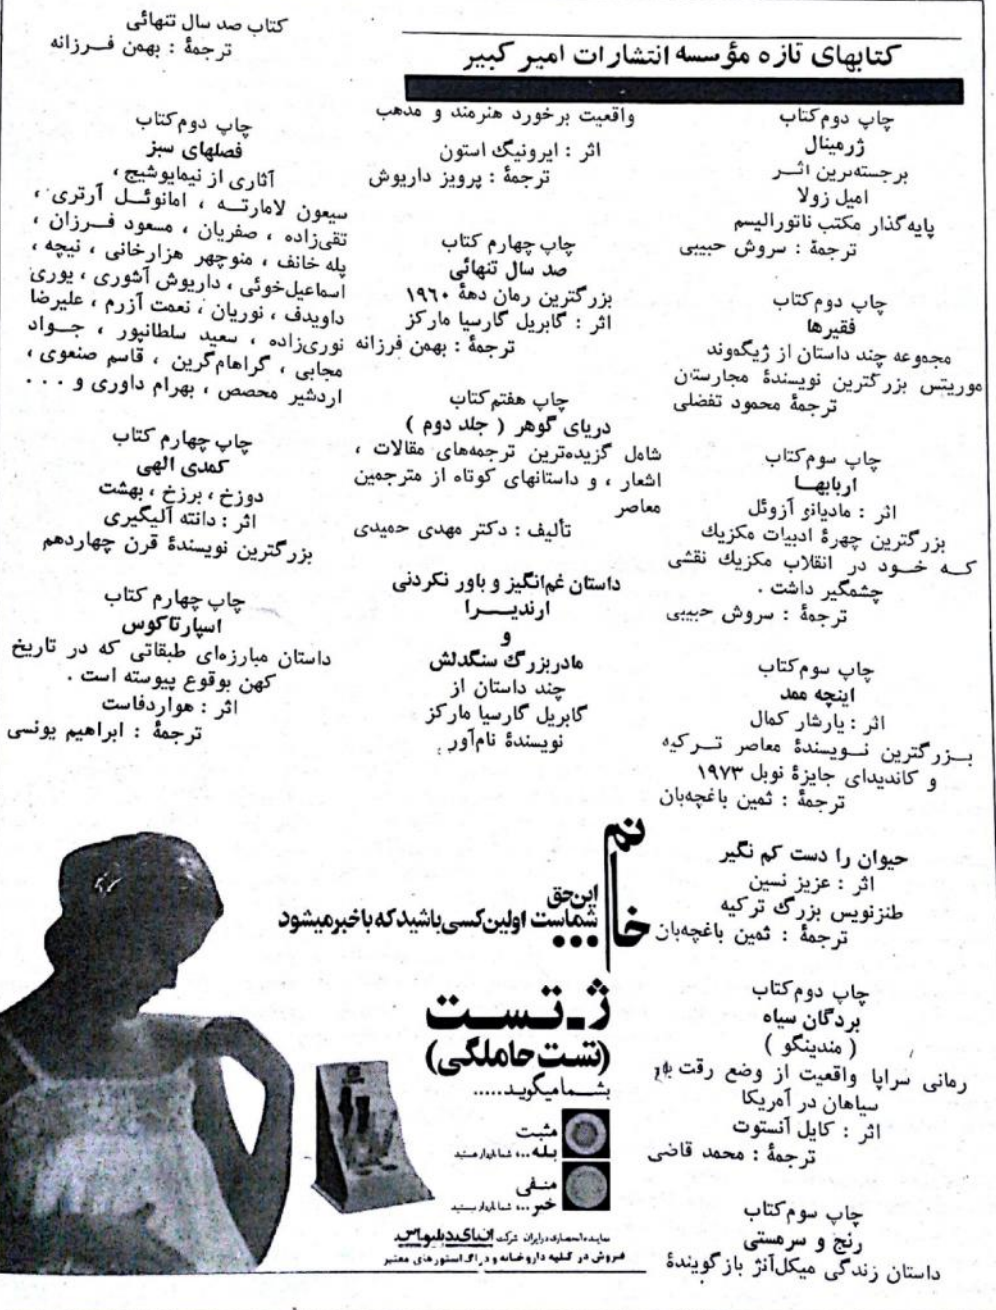 کتابهای تازه مؤسسه انتشارات امیر کبیر
چاپ دوم کتاب
ژرمینال
برجسته‌ترین اثـــر
امیل زولا
پایه‌گذار مکتب ناتورالیسم
ترجمهٔ : سروش حبیبی
چاپ دوم کتاب
فقیرها
مجموعه چند داستان از ژیگموند
موریتس بزرگترین نویسندهٔ مجارستان
ترجمهٔ محمود تفضلی
چاپ سوم کتاب
اربابهـا
اثر : ماریانو آزوئل
بزرگترین چهرهٔ ادبیات مکزیك
کــه خــود در انقلاب مکزیك نقشی
چشمگیر داشت .
ترجمهٔ : سروش حبیبی
چاپ سوم کتاب
اینجه ممد
اثر : یاشار کمال
بــزرگترین نــویسندهٔ معاصر تــرکیه
و کاندیدای جایزهٔ نوبل ۱۹۷۳
ترجمهٔ : ثمین باغچه‌بان
حیوان را دست کم نگیر
اثر : عزیز نسین
طنزنویس بزرگ ترکیه
ترجمهٔ : ثمین باغچه‌بان
چاپ دوم کتاب
بردگان سیاه
( مندینگو )
رمانی سراپا واقعیت از وضع رقت بار
سیاهان در آمریکا
اثر : کایل آنستوت
ترجمهٔ : محمد قاضی
چاپ سوم کتاب
رنج و سرمستی
داستان زندگی میکل‌آنژ بازگویندهٔ
واقعیت برخورد هنرمند و مذهب
اثر : ایرونیگ استون
ترجمهٔ : پرویز داریوش
چاپ چهارم کتاب
صد سال تنهائی
بزرگترین رمان دههٔ ۱۹٦۰
اثر : گابریل گارسیا مارکز
ترجمهٔ : بهمن فرزانه
چاپ هفتم کتاب
دریای گوهر ( جلد دوم )
شامل گزیده‌ترین ترجمه‌های مقالات ،
اشعار ، و داستانهای کوتاه از مترجمین
معاصر
تألیف : دکتر مهدی حمیدی
داستان غم‌انگیز و باور نکردنی
ارندیـــرا
و
مادربزرگ سنگدلش
چند داستان از
گابریل گارسیا مارکز
نویسندهٔ نام‌آور
کتاب صد سال تنهائی
ترجمهٔ : بهمن فــرزانه
چاپ دوم کتاب
فصلهای سبز
آثاری از نیمایوشیج ،
سیعون لامارتــه ، امانوئــل آرتری ،
تقی‌زاده ، صفریان ، مسعود فــرزان ،
پله خانف ، منوچهر هزارخانی ، نیچه ،
اسماعیل‌خوئی ، داریوش آشوری ، یوری
داویدف ، نوریان ، نعمت آزرم ، علیرضا
نوری‌زاده ، سعید سلطانپور ، جــواد
مجابی ، گراهام‌گرین ، قاسم صنعوی ،
اردشیر محصص ، بهرام داوری و . . .
چاپ چهارم کتاب
کمدی الهی
دوزخ ، برزخ ، بهشت
اثر : دانته آلیگیری
بزرگترین نویسندهٔ قرن چهاردهم
چاپ چهارم کتاب
اسپارتاکوس
داستان مبارزه‌ای طبقاتی که در تاریخ
کهن بوقوع پیوسته است .
اثر : هواردفاست
ترجمهٔ : ابراهیم یونسی
خانم ...
این‌حق
شماست اولین‌کسی باشید که باخبر میشود
ژ ـ تست
(تست حاملگی)
بشــما میگوید.....
مثبت
بـله ... شما باردار هستید
منـفی
خبر ... شما باردار نیستید
نماینده انحصاری در ایران شرکت
فـروش در کلیه داروخانه و دراگ استورهای معتبر